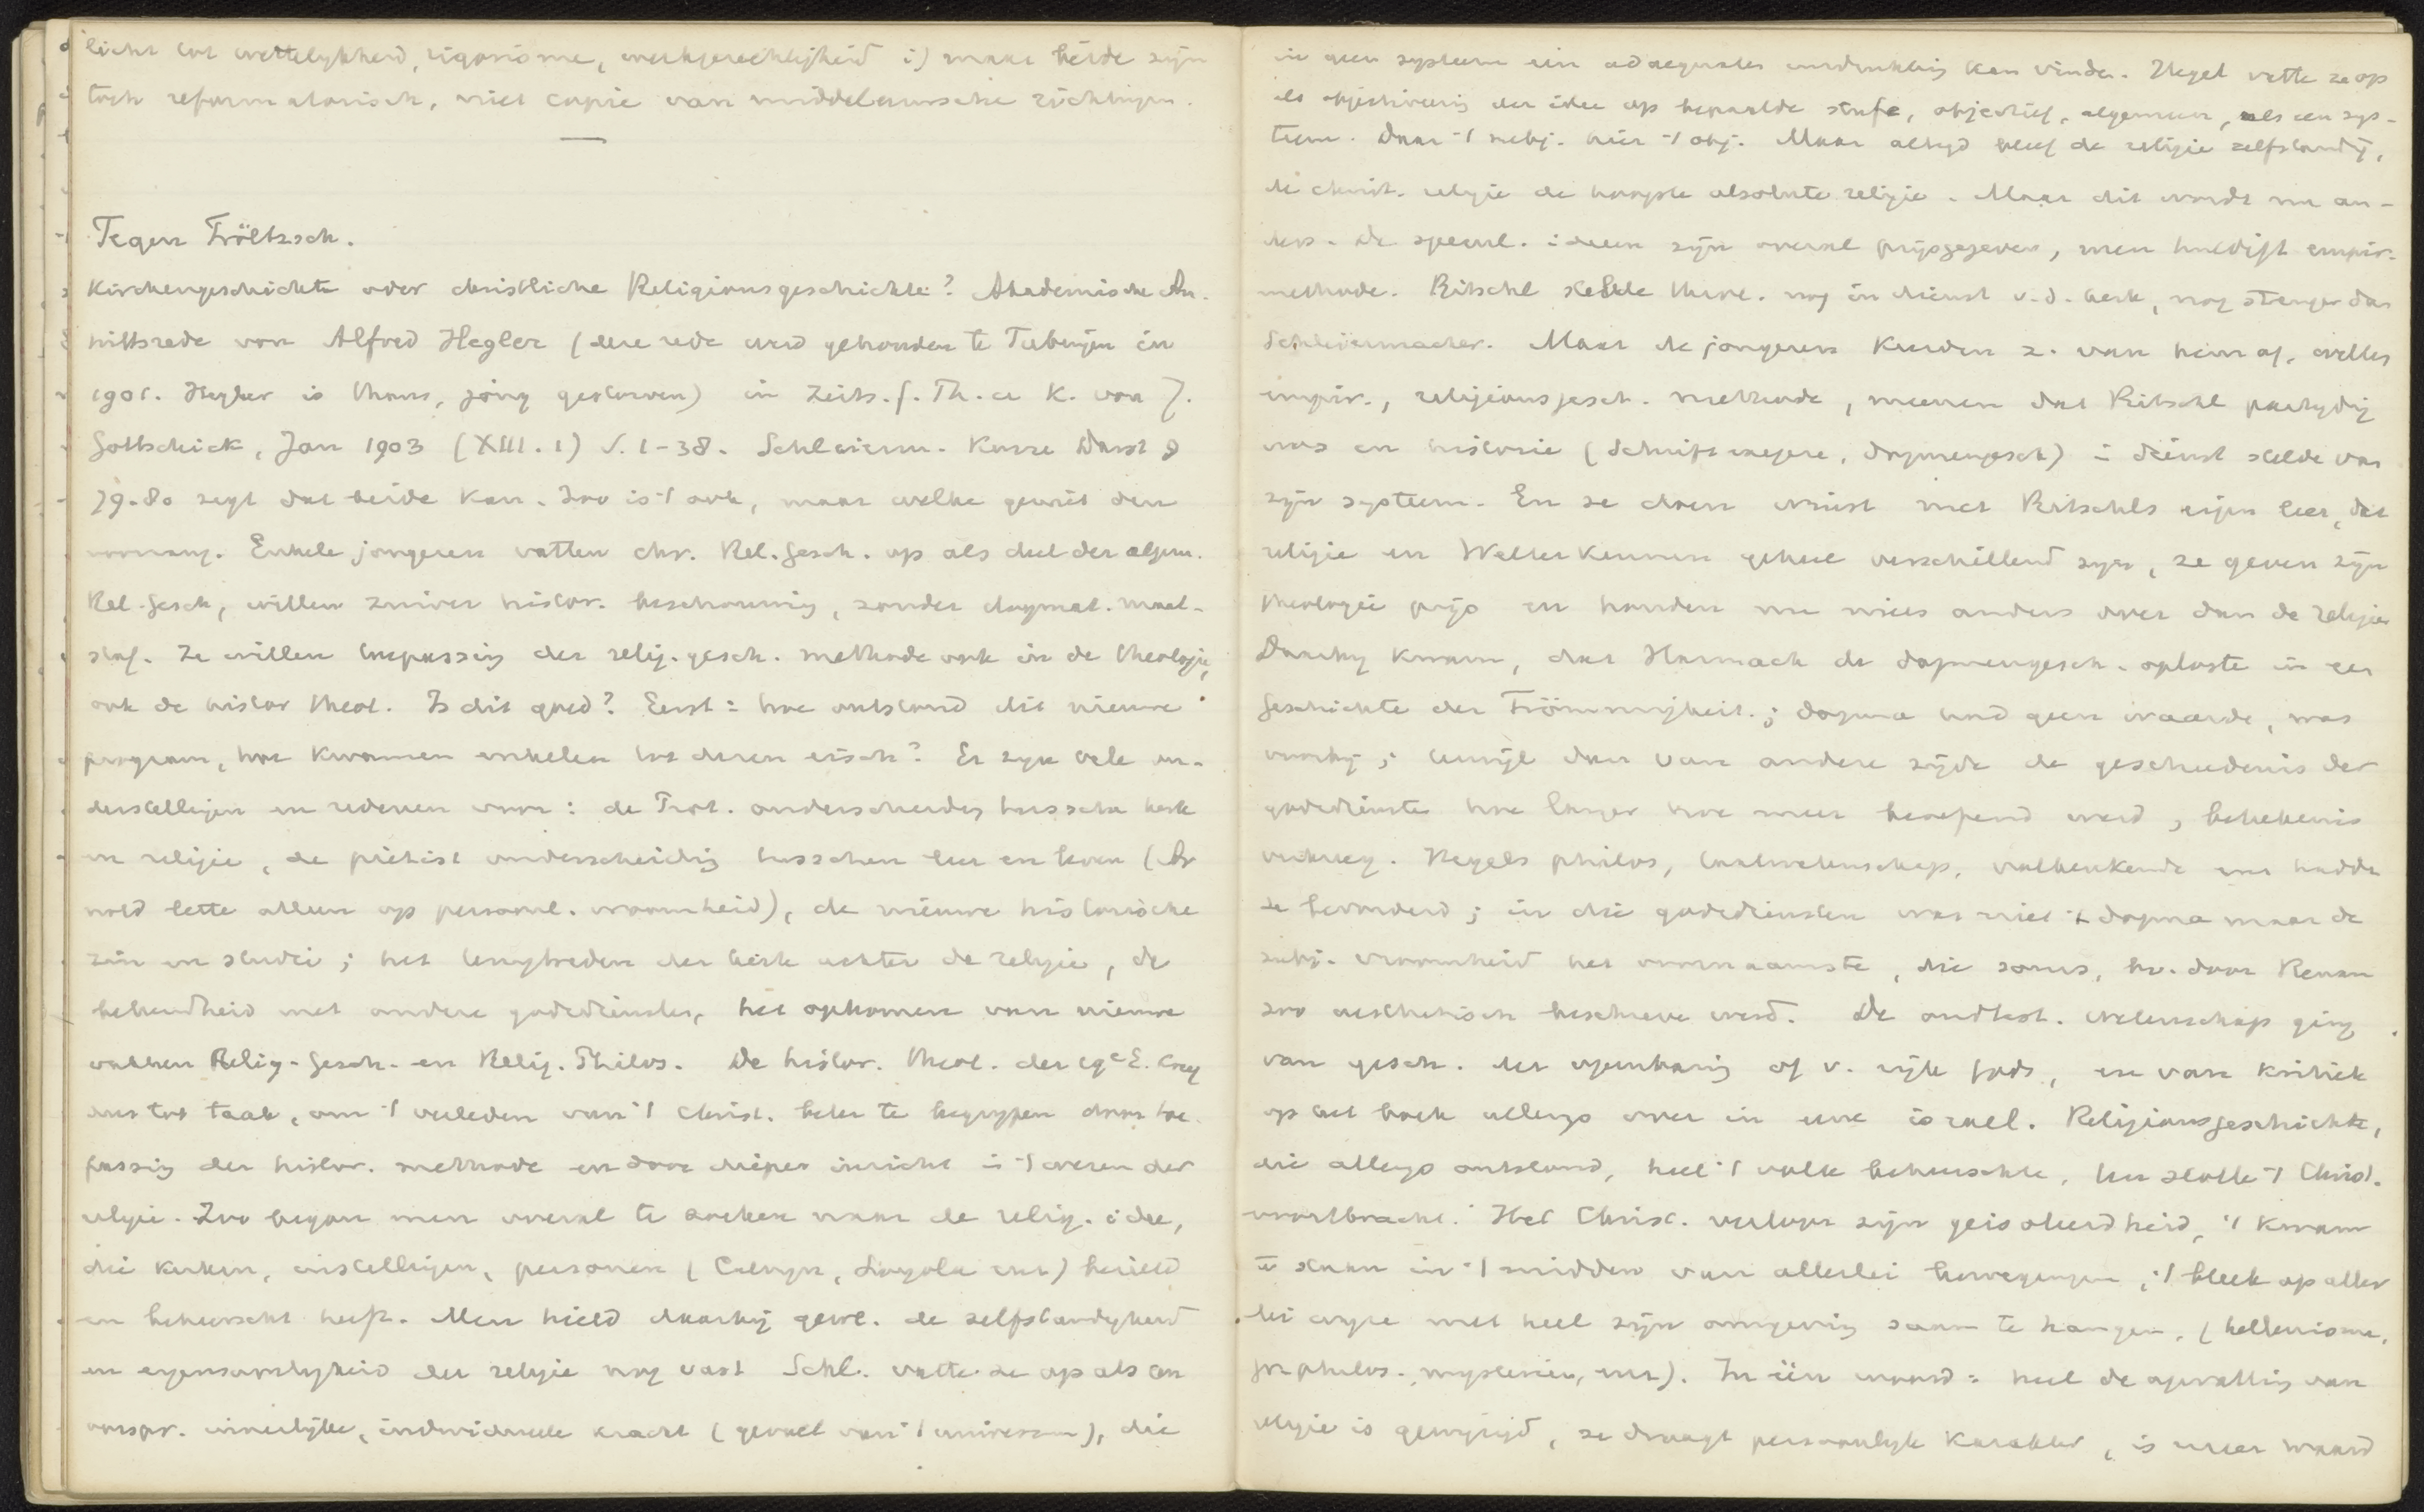 licht tot wettelykheid, rigorisme, werkgerechtigheid i) maar beide zyn
toch reformatorisch, niet copie van middeleeuwsche richtingen.
Tegen Tröltzsch.
Kirchengeschichte oder christliche Religionsgeschichte? Akademische An-
trittsrede von Alfred Hegler (deze rede werd gehouden te Tubingen in
1901. Hegler is thans, jong gestorven) in Zeits. f. Th. u K. von J.
Gottschick, Jan 1903 (XIII. 1) S. 1-38. Schleierm. Kurze Darst §
79-80 zegt dat beide kan. Zoo is 't ook, maar welke geniet den
voorrang. Enkele jongeren vatten chr. Rel. Gesch. op als deel der algem.
Rel. Gesch, willen zuiver histor. beschouwing, zonder dogmat. maat-
staf. Ze willen toepassing der relig. gesch. methode ook in de theologie,
ook de histor theol. Is dit goed? Eerst: hoe ontstond dit nieuwe
program, hoe kwamen enkelen tot dezen eisch? Er zyn vele on-
derstellingen en redenen voor: de Prot. onderscheiding tusschen kerk
en religie, de piëtist onderscheiding tusschen leer en leven (Ar
nold lette alleen op persoonl. vroomheid), de nieuwe historische
zin en studie; het terugtreden der kerk achter de religie, de
bekendheid met andere godsdiensten, het opkomen van nieuwe
vakken Relig-Gesch. en Relig. Philos. De histor. theol. der 19e E. kreeg
dus tot taak, om 't verleden van 't Christ. beter te begrypen door toe-
passing der histor. methode en door dieper inzicht in 't wezen der
religie. Zoo begon men overal te zoeken naar de relig. idee,
die kerken, instellingen, personen (Calvyn, Loyola enz) bezield
en beheerscht heeft. Men hield daarbij gew. de zelfstandigheid
en eigensoortigheid der religie nog vast Schl. vatte ze op als een
oorspr. innerlijke, individueele kracht (gevoel van 't universum), die
in geen systeem een adaequate uitdrukking kan vinden. Hegel vatte ze op
als objectiveering der idee op bepaalde stufe, objectief, algemeen, als een sys-
teem. Daar 't subj. hier 't obj. Maar altyd bleef de religie zelfstandig,
de christ. religie de hoogste absolute religie. Maar dit wordt nu an-
ders. De specul. ideen zyn overal prijsgegeven, men huldigt empir.
methode. Ritschl stelde theol. nog in dienst v. d. kerk, nog strenger dan
Schleiermacher. Maar de jongeren keerden z. van hem af, willen
empir., religionsgesch. methode, meenen dat Ritschl partydig
was en historie (Schriftexegese, dogmengesch) in dienst stelde van
zijn systeem. En ze doen winst met Ritschls eigen leer, dat
religie en Welterkennen geheel verschillend zyn, ze geven zijn
theologie prijs en houden nu niets anders over dan de religie
Daarby kwam, dat Harnack de dogmengesch. oploste in een
Geschichte der Frömmigkeit.; dogma had geen waarde, was
voorbij; terwijl dan van andere zijde de geschiedenis der
godsdiensten hoe langer hoe meer beoefend werd, beteekenis
verkreeg. Hegels philos, taalwetenschap, volkenkunde enz hadden
ze bevorderd; in die godsdiensten was niet 't dogma maar de
subj. vroomheid het voornaamste, die soms, bv. door Renan
zoo aesthetisch beschreven werd. De oudtest. wetenschap ging
van gesch. der openbaring of v. rijk Gods, en van kritiek
op het boek allengs over in eene israel. Religionsgeschichte,
die allengs ontstond, heel 't volk beheerschte, ten slotte 't Christ.
voortbracht. Het Christ. verloor zijn geisoleerdheid, 't kwam
te staan in 't midden van allerlei bewegingen; 't bleek op aller
lei wyze met heel zijn omgeving saam te hangen. (hellenisme,
gr philos. mysterien, enz). In één woord: heel de opvatting van
religie is gewyzigd, ze draagt persoonlyk karakter, is meer waard